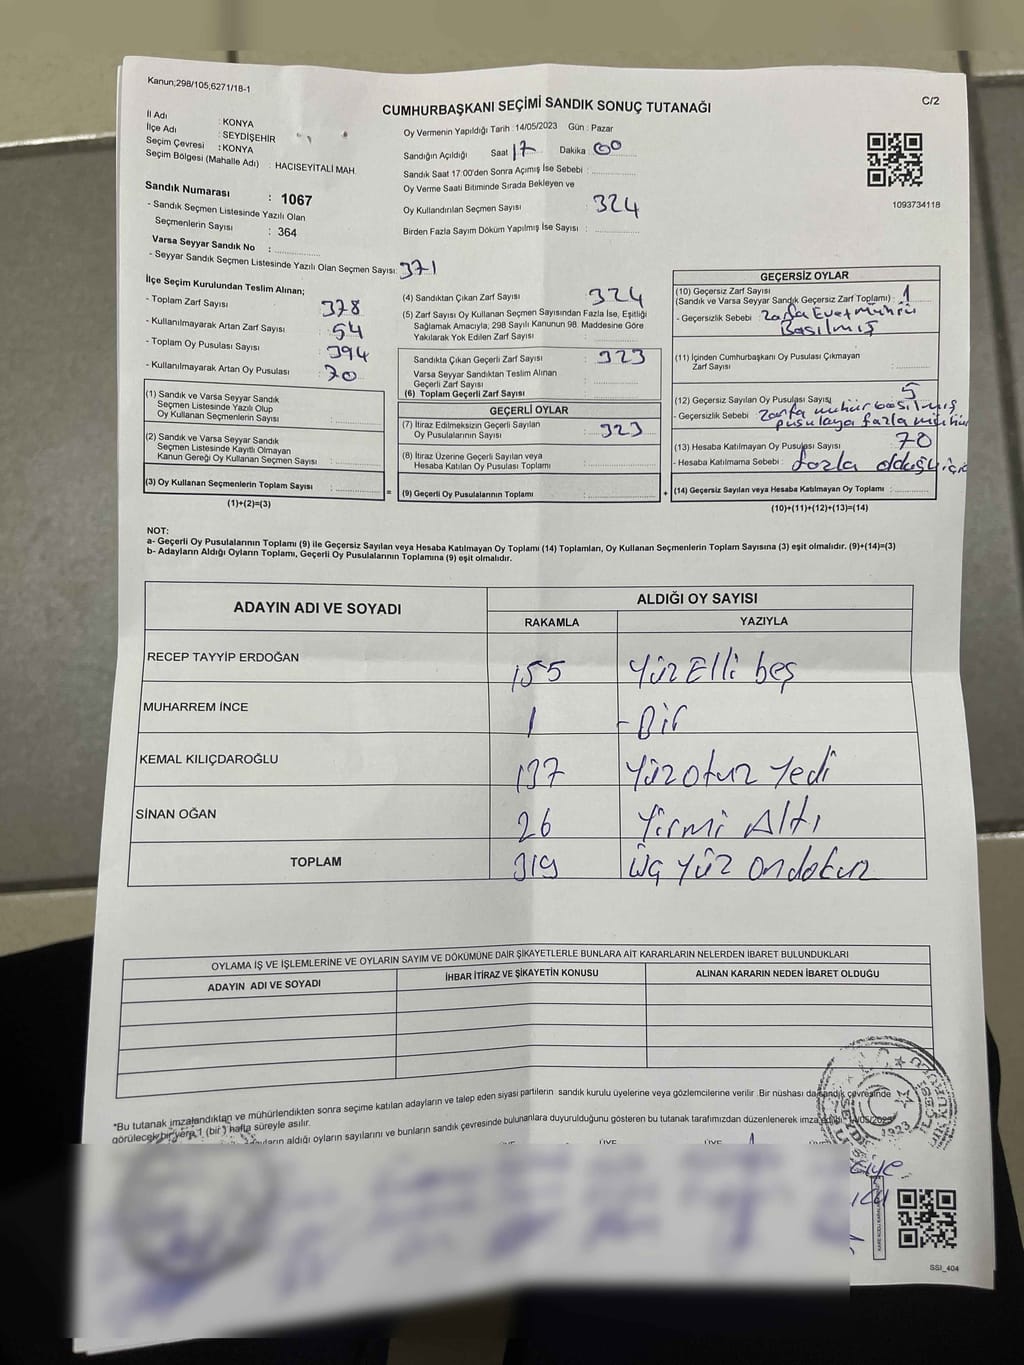 Kanun;298/105,6271/18-1
C/2
CUMHURBAŞKANI SEÇİMİ SANDIK SONUÇ TUTANAĞI
İl Adı : KONYA
İlçe Adı : SEYDİŞEHİR
Seçim Çevresi : KONYA
Seçim Bölgesi (Mahalle Adı) : HACISEYİTALİ MAH
Sandık Numarası : 1067
- Sandık Seçmen Listesinde Yazılı Olan
Seçmenlerin Sayısı : 364
Varsa Seyyar Sandık No :
- Seyyar Sandık Seçmen Listesinde Yazılı Olan Seçmen Sayısı: 371
Oy Vermenin Yapıldığı Tarih : 14/05/2023 Gün : Pazar
Sandığın Açıldığı Saat 17 Dakika 00
Sandık Saat 17:00'den Sonra Açılmış İse Sebebi :
Oy Verme Saati Bitiminde Sırada Bekleyen ve
Oy Kullandırılan Seçmen Sayısı : 324
Birden Fazla Sayım Döküm Yapılmış İse Sayısı :
1093734118
İlçe Seçim Kurulundan Teslim Alınan;
- Toplam Zarf Sayısı 378
- Kullanılmayarak Artan Zarf Sayısı : 54
- Toplam Oy Pusulası Sayısı : 394
- Kullanılmayarak Artan Oy Pusulası : 70
(1) Sandık ve Varsa Seyyar Sandık
Seçmen Listesinde Yazılı Olup
Oy Kullanan Seçmenlerin Sayısı :
(2) Sandık ve Varsa Seyyar Sandık
Seçmen Listesinde Kayıtlı Olmayan
Kanun Gereği Oy Kullanan Seçmen Sayısı :
(3) Oy Kullanan Seçmenlerin Toplam Sayısı :
(1)+(2)=(3)
(4) Sandıktan Çıkan Zarf Sayısı : 324
(5) Zarf Sayısı Oy Kullanan Seçmen Sayısından Fazla İse, Eşitliği
Sağlamak Amacıyla; 298 Sayılı Kanunun 98. Maddesine Göre
Yakılarak Yok Edilen Zarf Sayısı :
Sandıkta Çıkan Geçerli Zarf Sayısı : 323
Varsa Seyyar Sandıktan Teslim Alınan
Geçerli Zarf Sayısı :
(6) Toplam Geçerli Zarf Sayısı :
GEÇERLİ OYLAR
(7) İtiraz Edilmeksizin Geçerli Sayılan
Oy Pusulalarının Sayısı : 323
(8) İtiraz Üzerine Geçerli Sayılan veya
Hesaba Katılan Oy Pusulası Toplamı :
= (9) Geçerli Oy Pusulalarının Toplamı : +
GEÇERSİZ OYLAR
(10) Geçersiz Zarf Sayısı
(Sandık ve Varsa Seyyar Sandık Geçersiz Zarf Toplamı) : 1
- Geçersizlik Sebebi : Zarfa Evet Mührü
Basılmış
(11) İçinden Cumhurbaşkanı Oy Pusulası Çıkmayan
Zarf Sayısı :
(12) Geçersiz Sayılan Oy Pusulası Sayısı : 5
- Geçersizlik Sebebi : Zarfa mühür basılmış
pusulaya fazla mühür
(13) Hesaba Katılmayan Oy Pusulası Sayısı : 70
- Hesaba Katılmama Sebebi : fazla olduğu için
(14) Geçersiz Sayılan veya Hesaba Katılmayan Oy Toplamı :
(10)+(11)+(12)+(13)=(14)
NOT:
a- Geçerli Oy Pusulalarının Toplamı (9) ile Geçersiz Sayılan veya Hesaba Katılmayan Oy Toplamı (14) Toplamları, Oy Kullanan Seçmenlerin Toplam Sayısına (3) eşit olmalıdır. (9)+(14)=(3)
b- Adayların Aldığı Oyların Toplamı, Geçerli Oy Pusulalarının Toplamına (9) eşit olmalıdır.
ADAYIN ADI VE SOYADI
ALDIĞI OY SAYISI
RAKAMLA YAZIYLA
RECEP TAYYİP ERDOĞAN 155 Yüz Elli beş
MUHARREM İNCE 1 -Bir
KEMAL KILIÇDAROĞLU 137 Yüzotuz Yedi
SİNAN OĞAN 26 Yirmi Altı
TOPLAM 319 üç yüz ondokuz
OYLAMA İŞ VE İŞLEMLERİNE VE OYLARIN SAYIM VE DÖKÜMÜNE DAİR ŞİKAYETLERLE BUNLARA AİT KARARLARIN NELERDEN İBARET BULUNDUKLARI
ADAYIN ADI VE SOYADI İHBAR İTİRAZ VE ŞİKAYETİN KONUSU ALINAN KARARIN NEDEN İBARET OLDUĞU
*Bu tutanak imzalandıktan ve mühürlendikten sonra seçime katılan adayların ve talep eden siyasi partilerin sandık kurulu üyelerine veya gözlemcilerine verilir. Bir nüshası da sandık çevresinde
görülecek bir yere 1 (bir) hafta süreyle asılır.
aldığı oyların sayılarını ve bunların sandık çevresinde bulunanlara duyurulduğunu gösteren bu tutanak tarafımızdan düzenlenerek
ÜYE ÜYE
1923
SSI_404